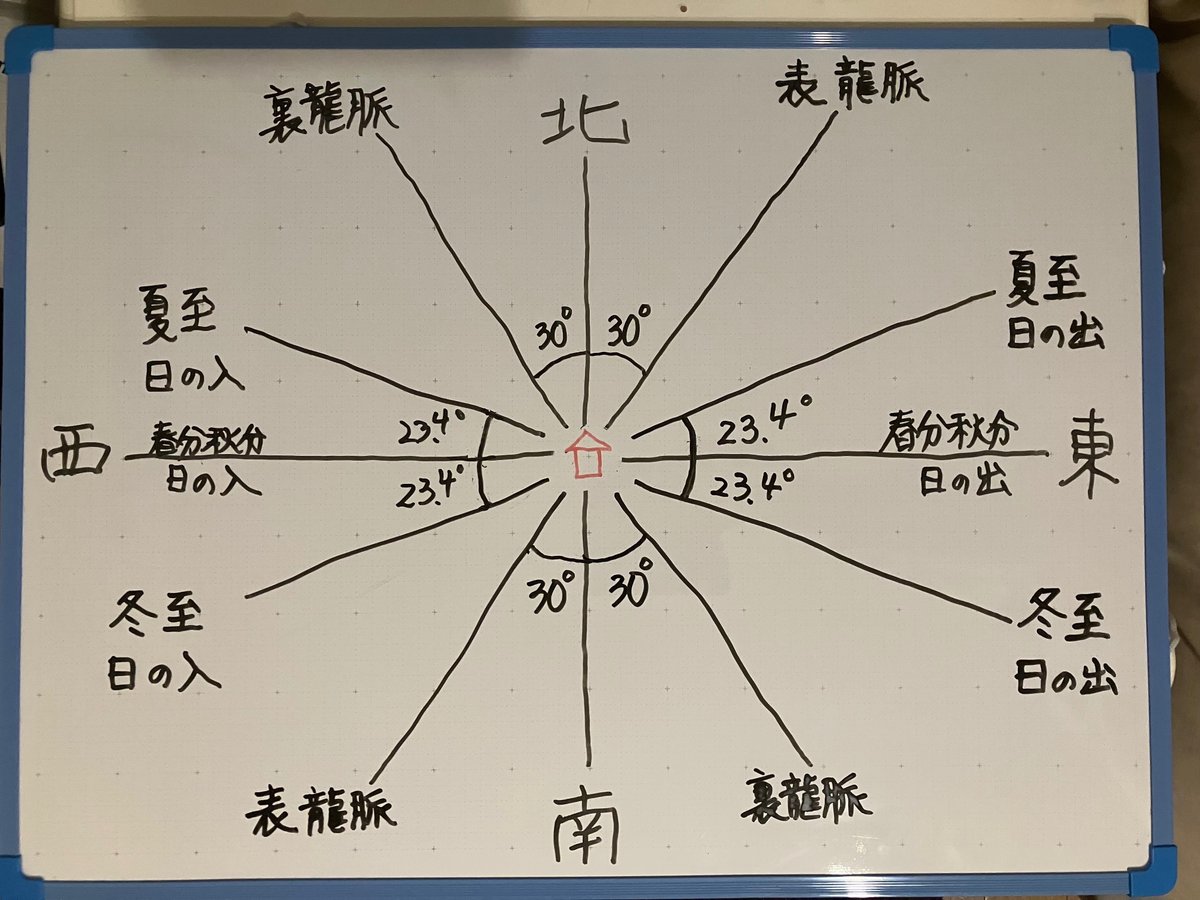 裏龍脈
北
表龍脈
夏至
日の入
30°
30°
夏至
日の出
23.4°
23.4°
西
春分秋分
日の入
春分秋分
日の出
東
23.4°
23.4°
冬至
日の入
30°
30°
冬至
日の出
表龍脈
南
裏龍脈